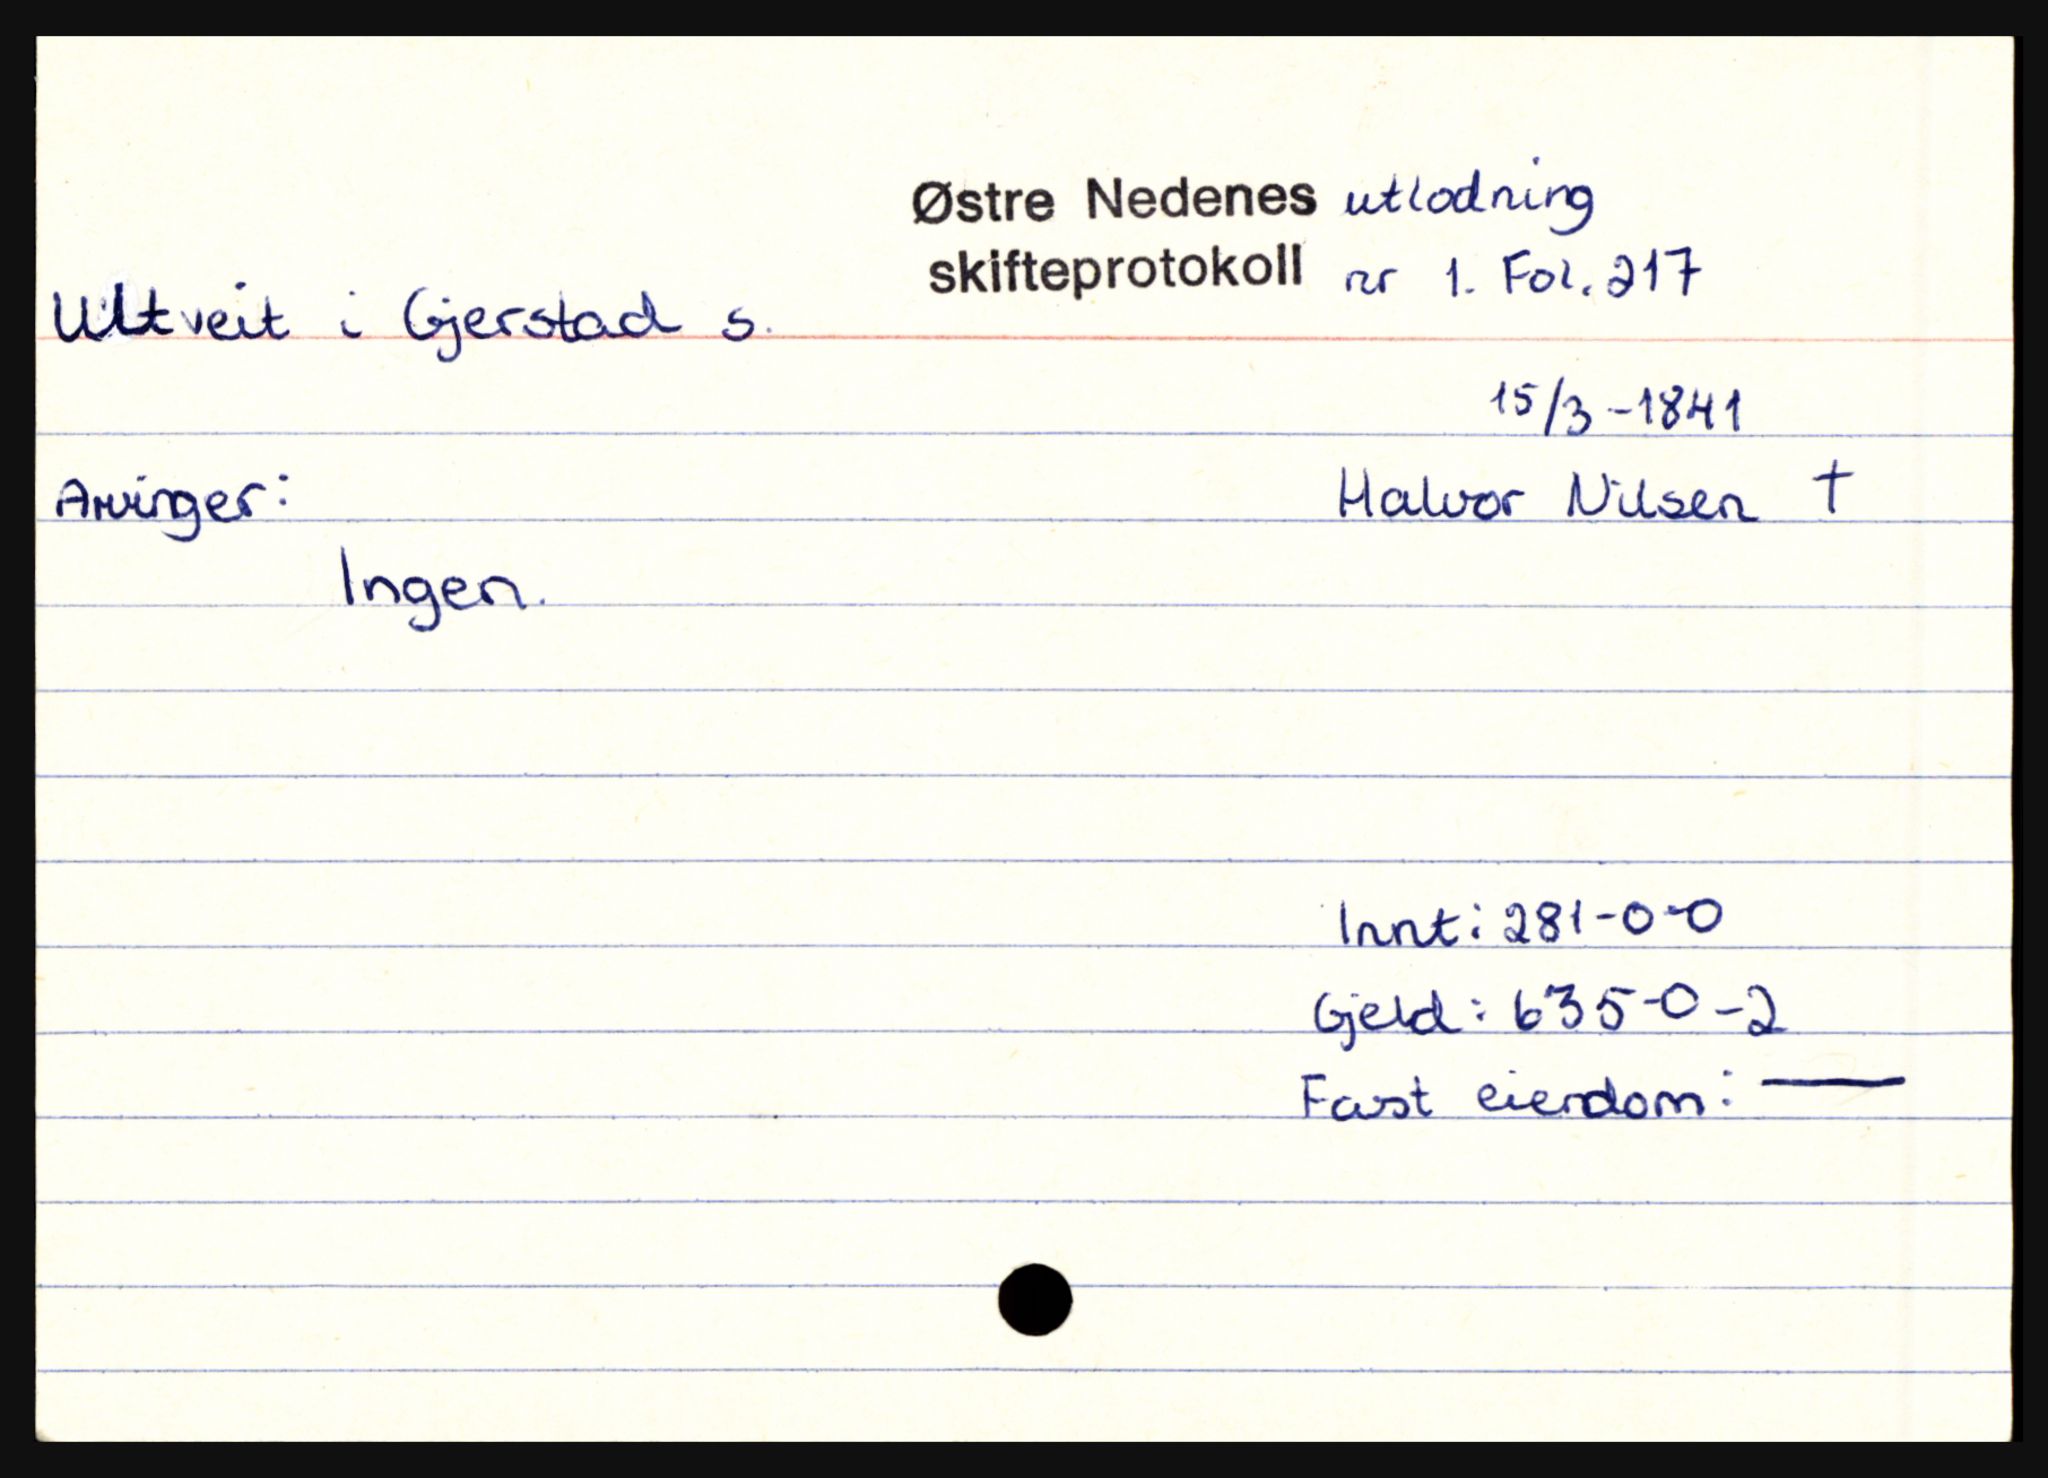 Østre Nedenes utlodning
skifteprotokoll nr 1. Fol. 217
Ultveit i Gjerstad s.
15/3-1841
Arvinger: Halvor Nilsen †
Ingen.
Innt: 281-0-0
Gjeld: 635-0-2
Fast eiendom: —